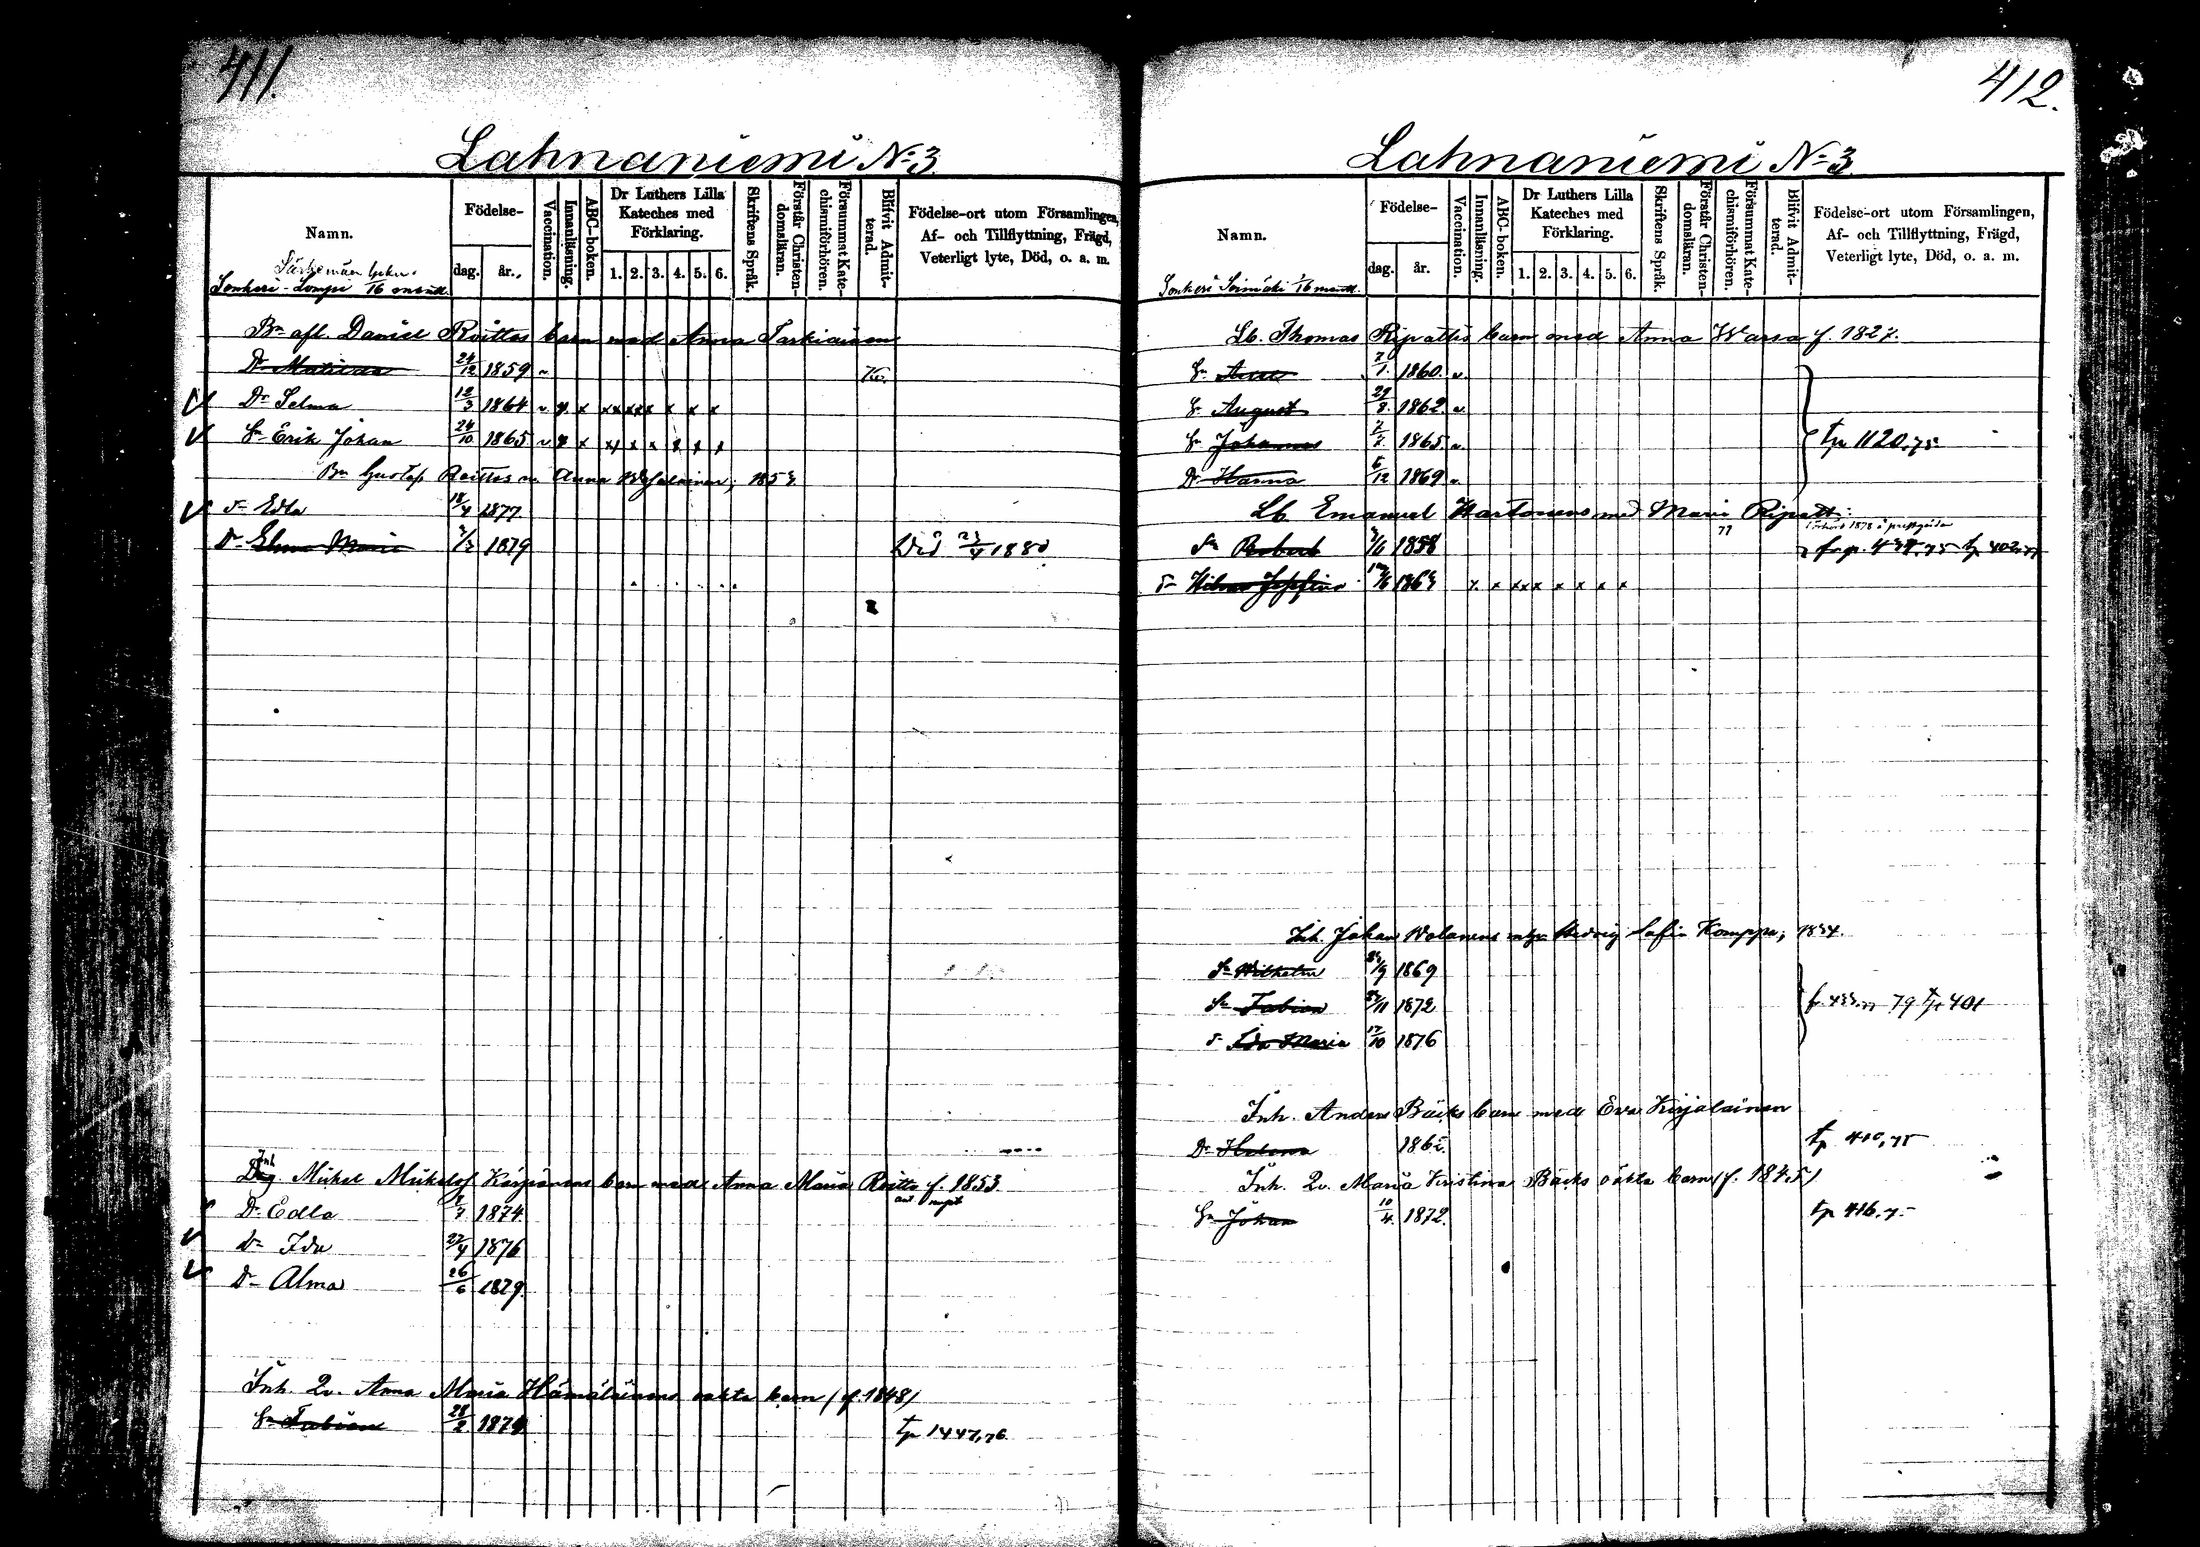 411.
Lahnaniemi No 3
Namn.
Födelse-
dag.
år.
Vaccination.
Innanläsning.
ABC-boken.
Dr Luthers Lilla
Kateches med
Förklaring.
1. 2. 3. 4. 5. 6.
Skriftens Språk.
Förstår Christen-
domsläran.
Försummat Kate-
chismiförhören.
Blifvit Admit-
terad.
Födelse-ort utom Församlingen,
Af- och Tillflyttning, Frägd,
Veterligt lyte, Död, o. a. m.
Sonkeri-Lempi 1/16 mantl.
Bn afl. Daniel Roittos barn med Anna Tarkiainen
Dr Matilda 24/12 1859
Dr Selma 12/3 1864 x x x x x x x x x
Sn Erik Johan 24/10 1865 x x x x x x x
Bn Gustaf Roittos m. Anna 1853
dr Edla 18/4 1877
Dr Elma Maria 1879 Död 23/4 1880
Inh Mikel Mikelsf Kärjänens barn med Anna Maria Roitto f. 1853
Dr Edla 1874.
Dr Ida 27/4 1876
Dr Alma 26/6 1879.
Inh. Qv. Anna Maria Hämäläinens oäkta barn (f. 1848)
Sn Fabian 28/2 1874 tp 1447,76
412.
Lahnaniemi No 3
Namn.
Födelse-
dag.
år.
Vaccination.
Innanläsning.
ABC-boken.
Dr Luthers Lilla
Kateches med
Förklaring.
1. 2. 3. 4. 5. 6.
Skriftens Språk.
Förstår Christen-
domsläran.
Försummat Kate-
chismiförhören.
Blifvit Admit-
terad.
Födelse-ort utom Församlingen,
Af- och Tillflyttning, Frägd,
Veterligt lyte, Död, o. a. m.
Sonkeri Soimäki 1/16 mantl.
Lb. Thomas Ripattis barn med Anna Warsa f. 1827.
Sn 7/1 1860.
Sn August 29/8 1862.
Sn Johannes 1865 tp 1120,75
Dr Hanna 6/12 1869
Lb Emanuel Hartonens med Maria Ripatti
Sn Robert 1858 fr p. 434,75 tp 402,77
dr Wilma Josefina 1863 x x x x x x x x x
Inh. Johan Wolanens m. h. Hedvig Sofia Komppa, 1834.
Sn Wilhelm 1869
Sn Fabian 1872 79 tp 401
dr Ida Maria 17/10 1876
Inh. Anders Bäcks barn med Eva Kirjalainen
Dr Helena 1865. tp 410,75
Inh. Qv. Maria Kristina Bäcks oäkta barn (f. 1845)
Sn Johan 10/4 1872. tp 416,75